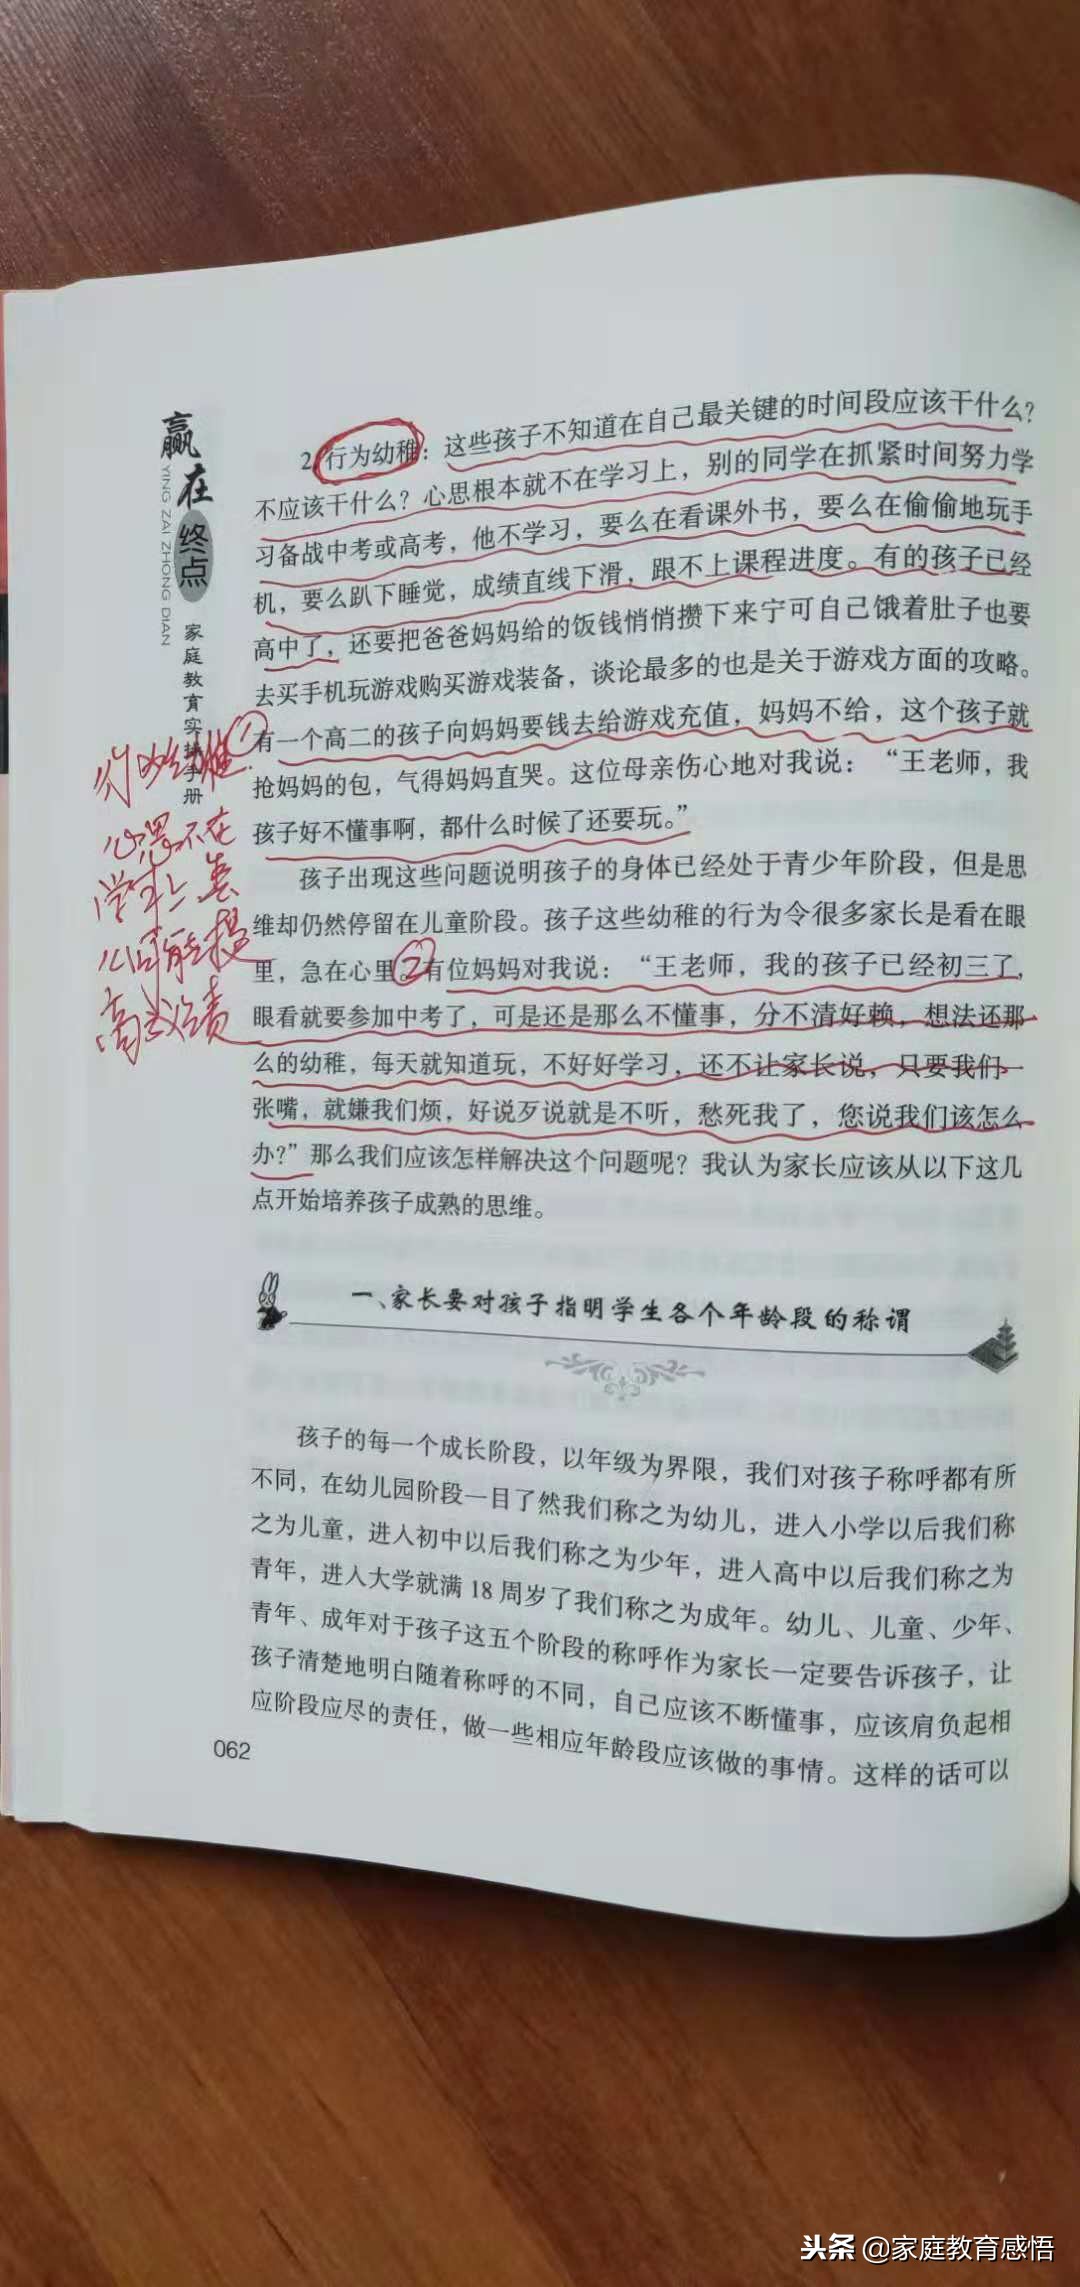 赢在终点
YING ZAI ZHONG DIAN
家庭教育实操手册
2.行为幼稚：这些孩子不知道在自己最关键的时间段应该干什么？
不应该干什么？心思根本就不在学习上，别的同学在抓紧时间努力学
习备战中考或高考，他不学习，要么在看课外书，要么在偷偷地玩手
机，要么趴下睡觉，成绩直线下滑，跟不上课程进度。有的孩子已经
高中了，还要把爸爸妈妈给的饭钱悄悄攒下来宁可自己饿着肚子也要
去买手机玩游戏购买游戏装备，谈论最多的也是关于游戏方面的攻略。
①有一个高二的孩子向妈妈要钱去给游戏充值，妈妈不给，这个孩子就
抢妈妈的包，气得妈妈直哭。这位母亲伤心地对我说：“王老师，我
孩子好不懂事啊，都什么时候了还要玩。”
孩子出现这些问题说明孩子的身体已经处于青少年阶段，但是思
维却仍然停留在儿童阶段。孩子这些幼稚的行为令很多家长是看在眼
里，急在心里。②有位妈妈对我说：“王老师，我的孩子已经初三了，
眼看就要参加中考了，可是还是那么不懂事，分不清好赖，想法还那
么的幼稚，每天就知道玩，不好好学习，还不让家长说，只要我们一
张嘴，就嫌我们烦，好说歹说就是不听，愁死我了，您说我们该怎么
办？”那么我们应该怎样解决这个问题呢？我认为家长应该从以下这几
点开始培养孩子成熟的思维。
行为幼稚
心思不在
学习上怎
么可能提
高成绩
一、家长要对孩子指明学生各个年龄段的称谓
孩子的每一个成长阶段，以年级为界限，我们对孩子称呼都有所
不同，在幼儿园阶段一目了然我们称之为幼儿，进入小学以后我们称
之为儿童，进入初中以后我们称之为少年，进入高中以后我们称之为
青年，进入大学就满18周岁了我们称之为成年。幼儿、儿童、少年、
青年、成年对于孩子这五个阶段的称呼作为家长一定要告诉孩子，让
孩子清楚地明白随着称呼的不同，自己应该不断懂事，应该肩负起相
应阶段应尽的责任，做一些相应年龄段应该做的事情。这样的话可以
062
头条 @家庭教育感悟